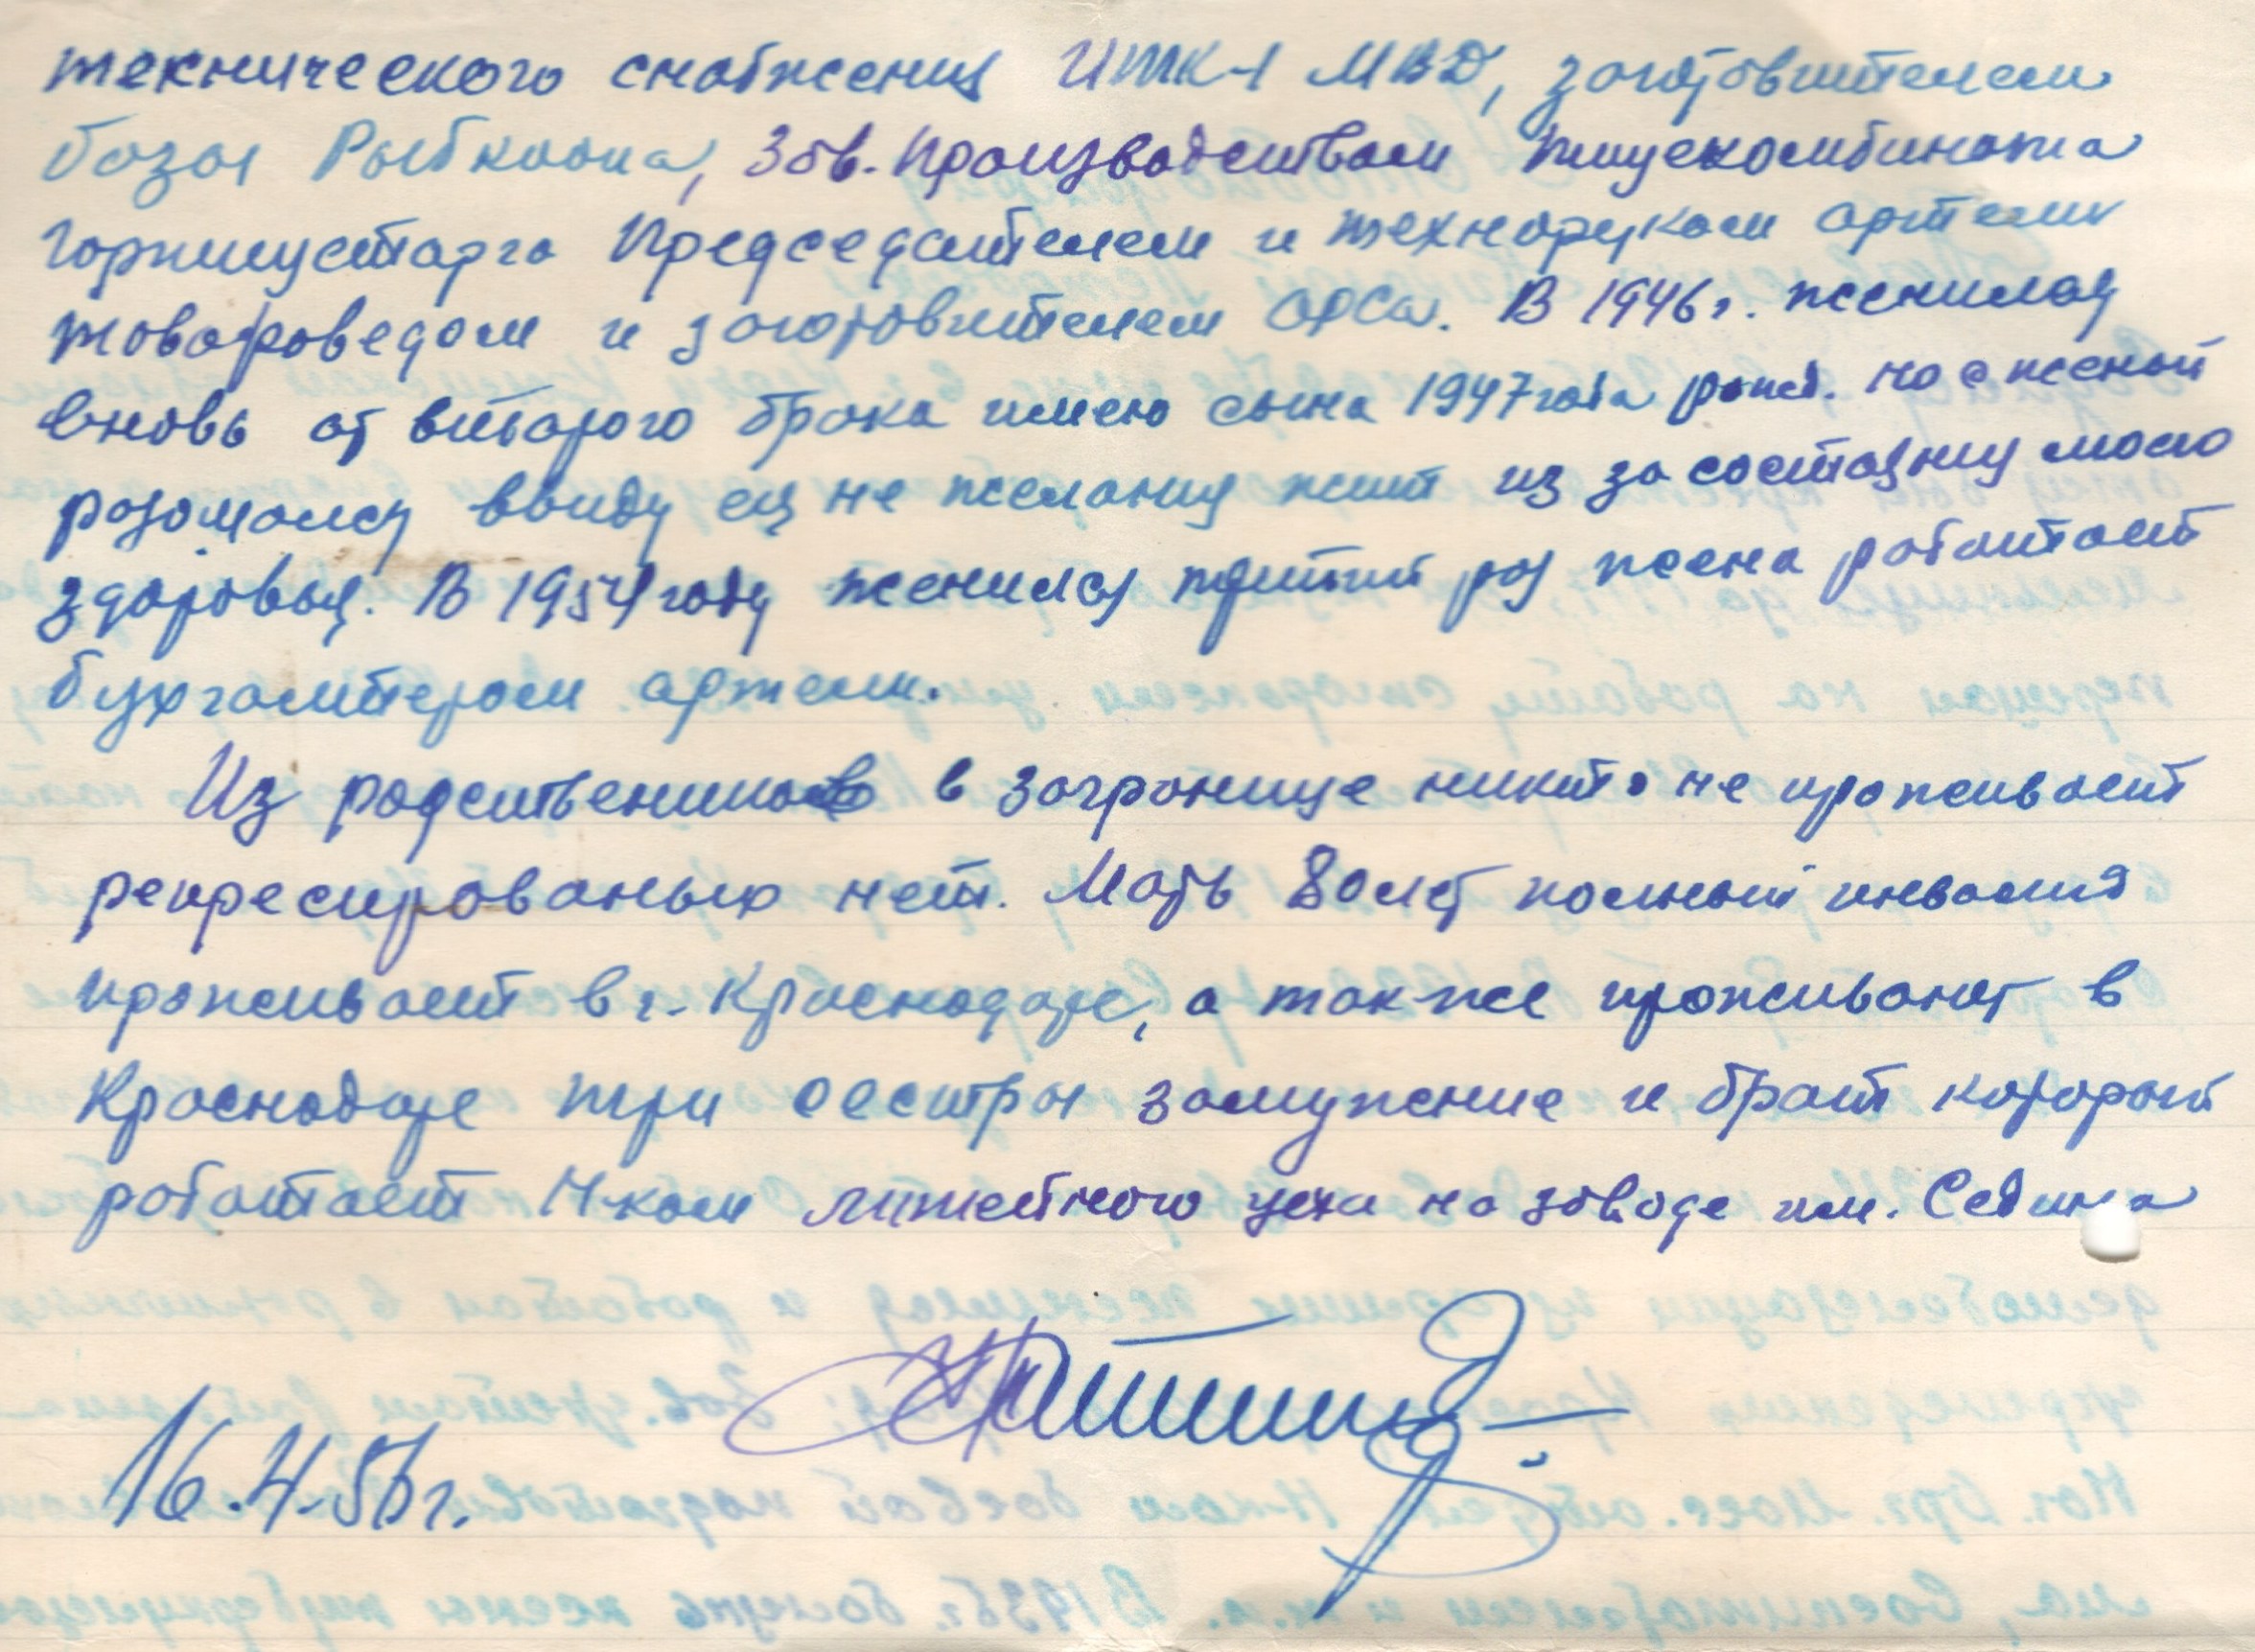 технического снабжения ИТК-1 МВД, заготовителем
базы Рыбкоопа, Зав. Производством пищекомбината
Горпищеторга Председателем и техноруком артели
товароведом и заготовителем ОРСа. В 1946 г. женился
вновь от второго брака имею сына 1947 года рожд. но с женой
розошолся ввиду ея не желания жит из за состаяния моего
здоровья. В 1954 году женился третий раз жена работает
бухгалтером артели.
Из родствеников в загранице никто не проживает
репресированых нет. Мать 80 лет полный инвалид
проживает в г. Краснодаре, а так-же проживают в
Краснодаре три сестры замужение и брат который
работает Н-ком литейного цеха на заводе им. Седина
16.4.56 г.